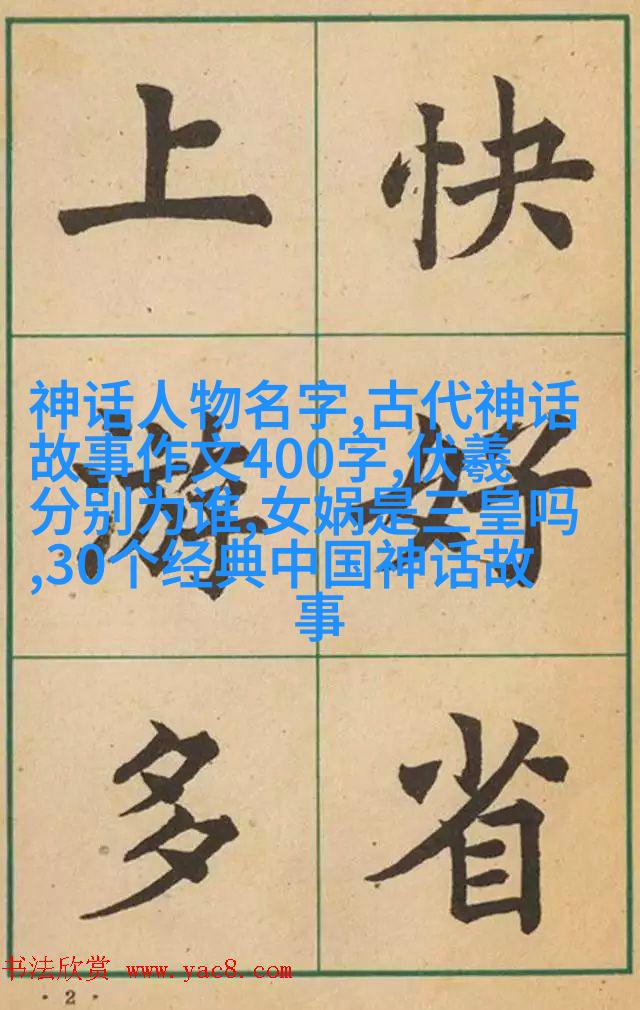 上游多
快好省
神话人物名字,古代神话
故事作文400字,伏羲
分别为谁,女娲是三皇吗
,30个经典中国神话故
事
书法欣赏 www.yac8.com
·2·